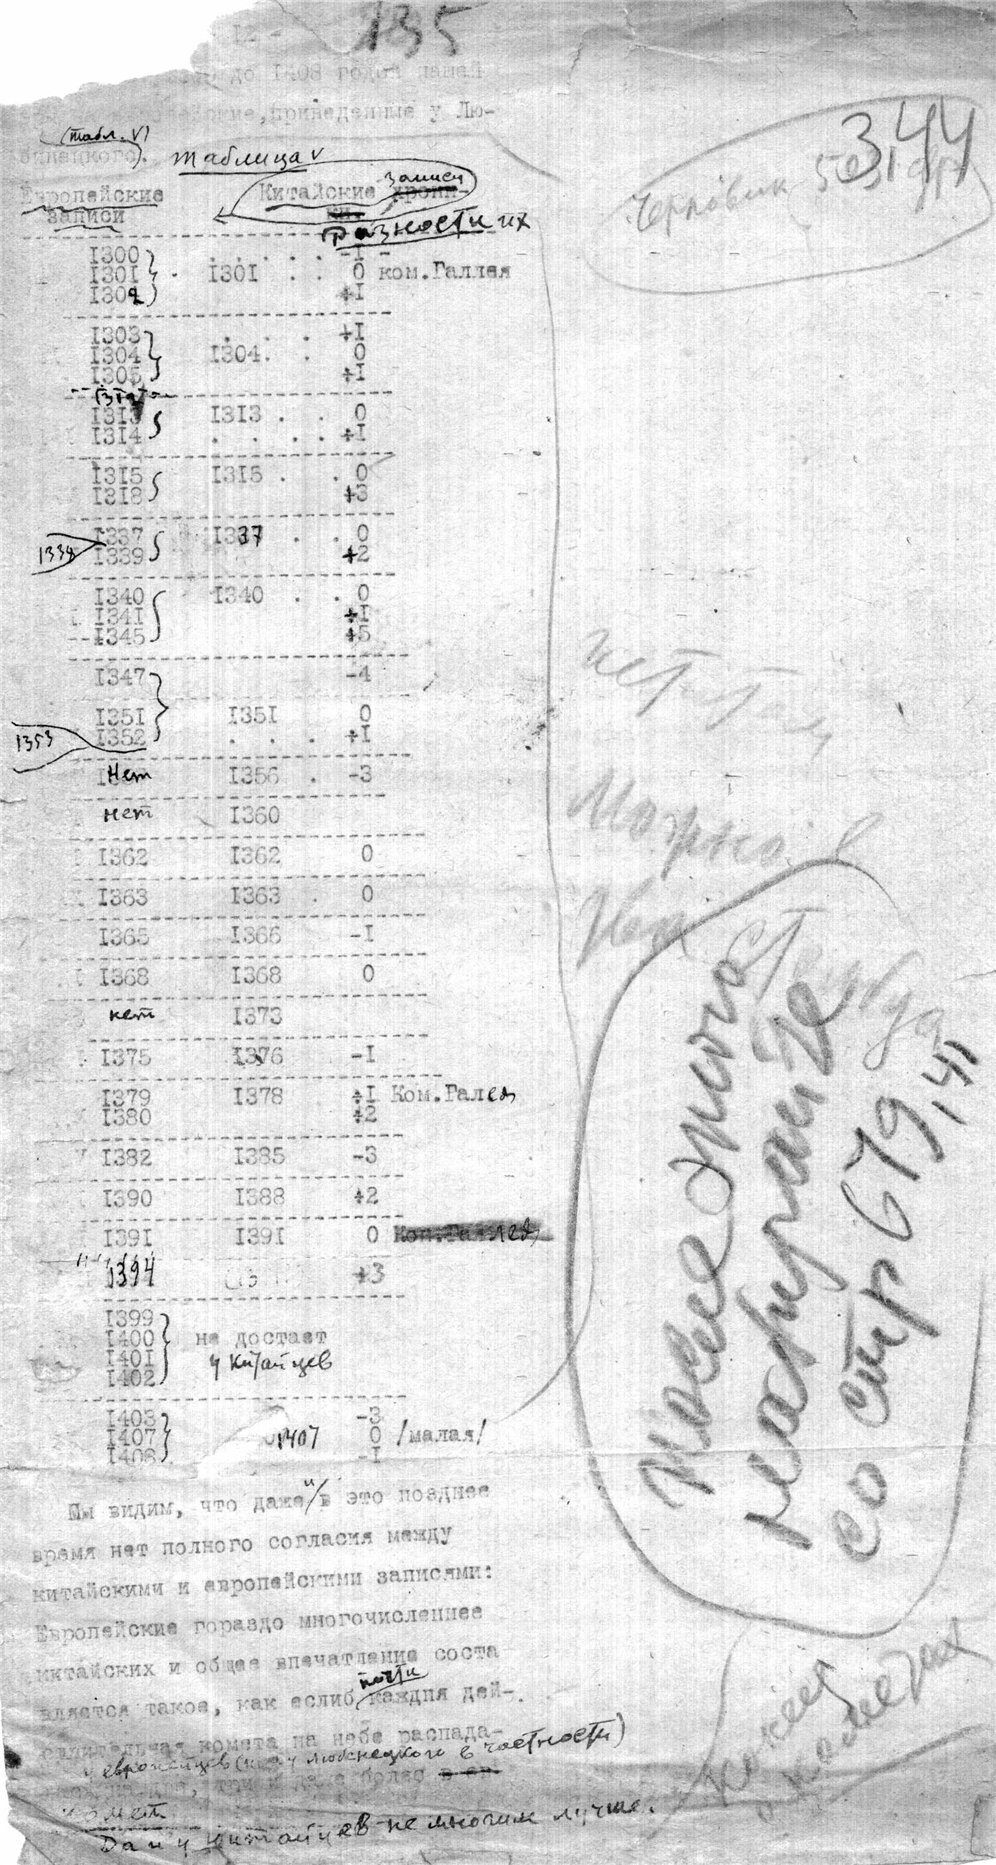 12 -
135
до 1408 годов нашей
приведенные у Лю-
(табл. V)
бинецкого. таблица V
344
Черновик
Европейские записи
Китайские хрони-ки записи
разности их
1300 . . . . . -1 -
1301 . 1301 . . 0 ком.Галлея
1302 +1
1303 . . . +1
1304 1304. . 0
1305 +1
1313 1313 . . 0
1314 . . . . +1
1315 1315 . . 0
1318 +3
1337 1337 . . 0
1339 +2
1340 1340 . . 0
1341 +1
1345 +5
1347 -4
1351 1351 0
1353
1352 . . . +1
Нет 1356 . -3
нет 1360
1362 1362 0
1363 1363 . 0
1365 1366 -1
1368 1368 0
нет 1373
1375 1376 -1
1379 1378 +1 Ком.Галея
1380 +2
1382 1385 -3
1390 1388 +2
1391 1391 0 Ком.Галлея
1394 +3
1399
1400 не достает
1401 у китайцев
1402
1403 -3
1407 1407 0 /малая/
1408 -1
Можно в
После этого
со стр 679,141
Мы видим, что даже и в это позднее
время нет полного согласия между
китайскими и европейскими записями:
Европейские гораздо многочисленнее
китайских и общее впечатление соста
вляется такое, как еслиб почти каждая дей-
ствительная комета на небе распада-
у европейцев (и у Любенецкого в частности)
комет
Да и у китайцев не многим лучше.
конец
о кометах